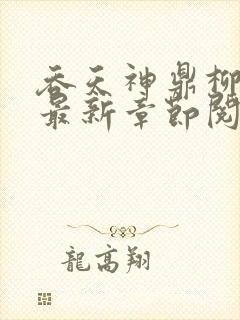 吞天神鼎柳
最新章節閱
龍高翔